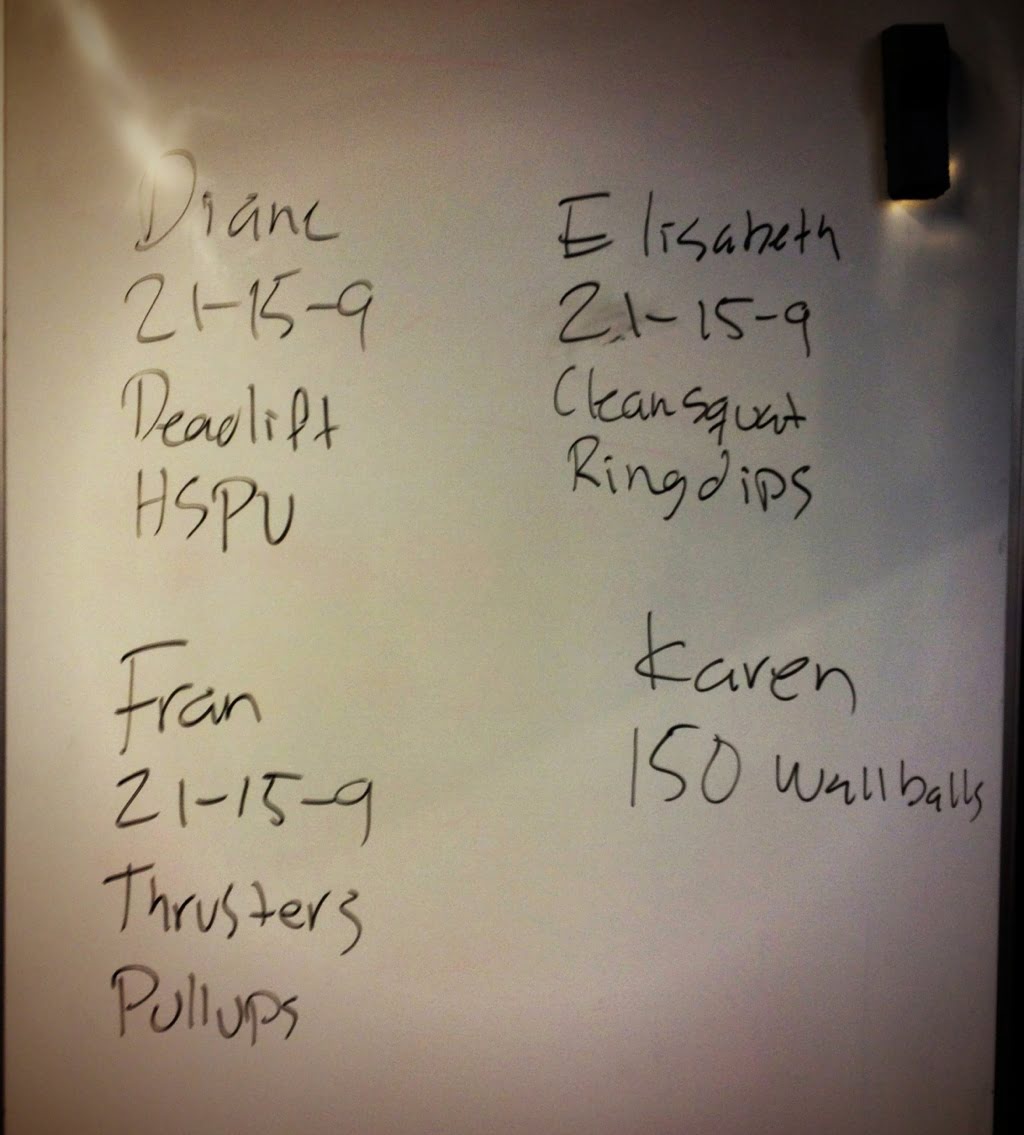 Diane
21-15-9
Deadlift
HSPU
Elisabeth
21-15-9
Clean squat
Ringdips
Fran
21-15-9
Thrusters
Pullups
Karen
150 wallballs